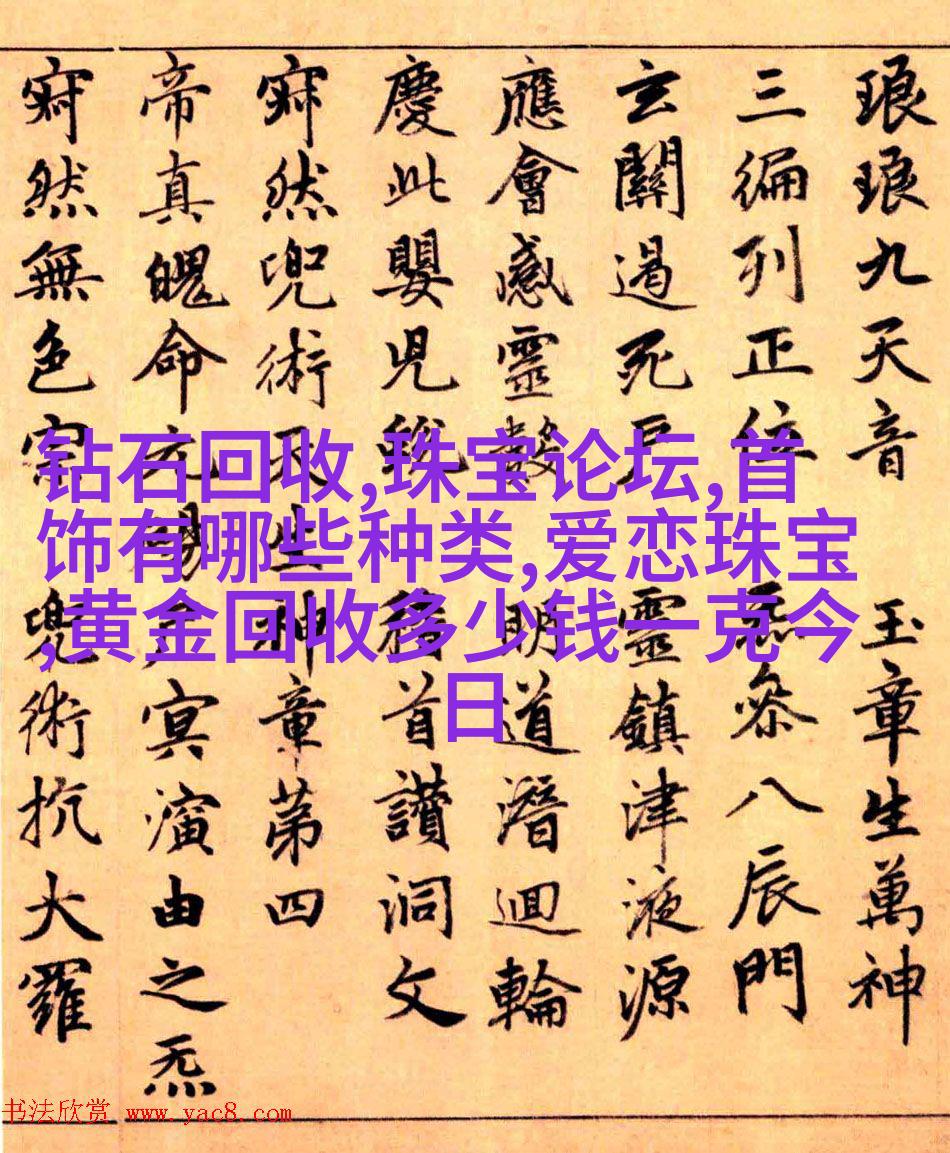 琅琅九天音 玉章生萬神
三編列正位 炁叅八辰門
玄關遏死戶 靈鎮津液源
應會感靈數 明道潛迴輪
慶此嬰兒蛻 稽首讚洞文
寂然兜術天生神章第四
帝真魄命元冥演由之炁
寂然無色宗 兜術抗大羅
钻石回收,珠宝论坛,首
饰有哪些种类,爱恋珠宝
,黄金回收多少钱一克今
日
书法欣赏 www.yac8.com